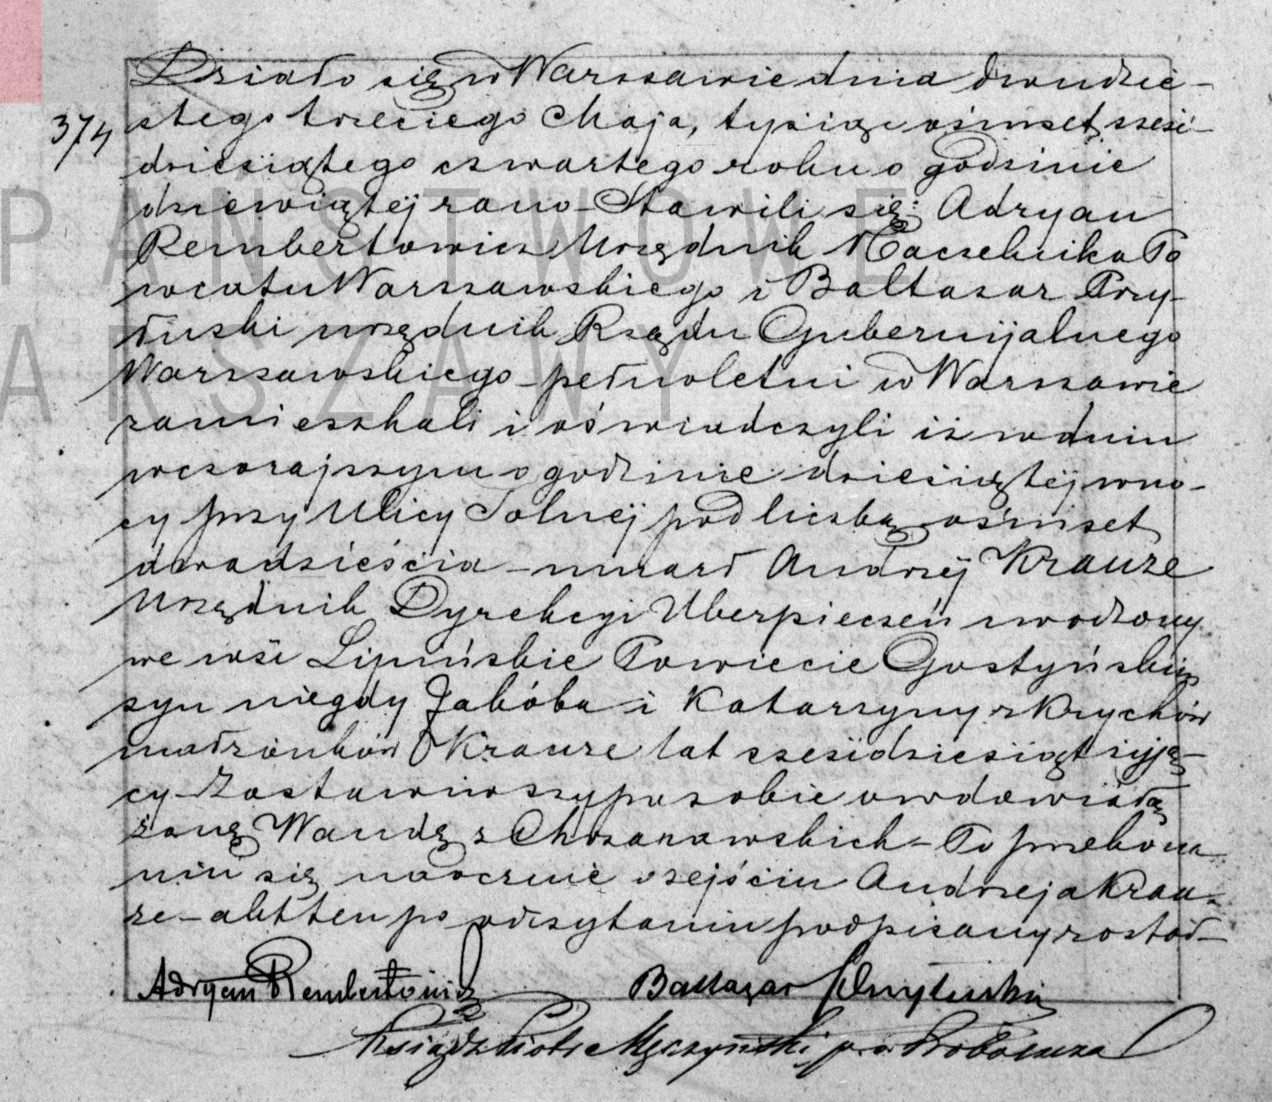 374
Działo się w Warszawie dnia dwudzie-
stego trzeciego Maja, tysiąc ośmset sześć-
dziesiątego czwartego roku o godzinie
dziewiątej rano - Stawili się: Adryan
Rembertowicz Urzędnik Naczelnika Po
wiatu Warszawskiego i Baltazar Przy-
łuski urzędnik Rządu Gubernijalnego
Warszawskiego - pełnoletni w Warszawie
zamieszkali i oświadczyli iż w dniu
wczorajszym o godzinie dziesiątej w no-
cy przy Ulicy Solnej pod liczbą ośmset
dwadzieścia - umarł Andrzej Krauze
Urzędnik Dyrekcyi Ubezpieczeń urodzony
we wsi Lipińskie Powiecie Gostyńskim
syn niegdy Jakóba i Katarzyny z Krychów
małżonków Krauze lat sześćdziesiąt żyją-
cy - Zostawiwszy po sobie owdowiałą
żonę Wandę z Chrzanowskich - Po przekona
niu się naocznie o zejściu Andrzeja Krau-
ze - akt ten po odczytaniu podpisany został -
Adryan Rembertowicz Baltazar Przyłuski
Ksiądz Piotr Męczyński Proboszcza
PAŃSTWOWE
ARSZAWY